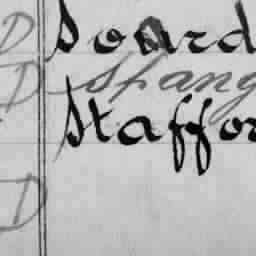 D Soard
D Spang
Staffor
D